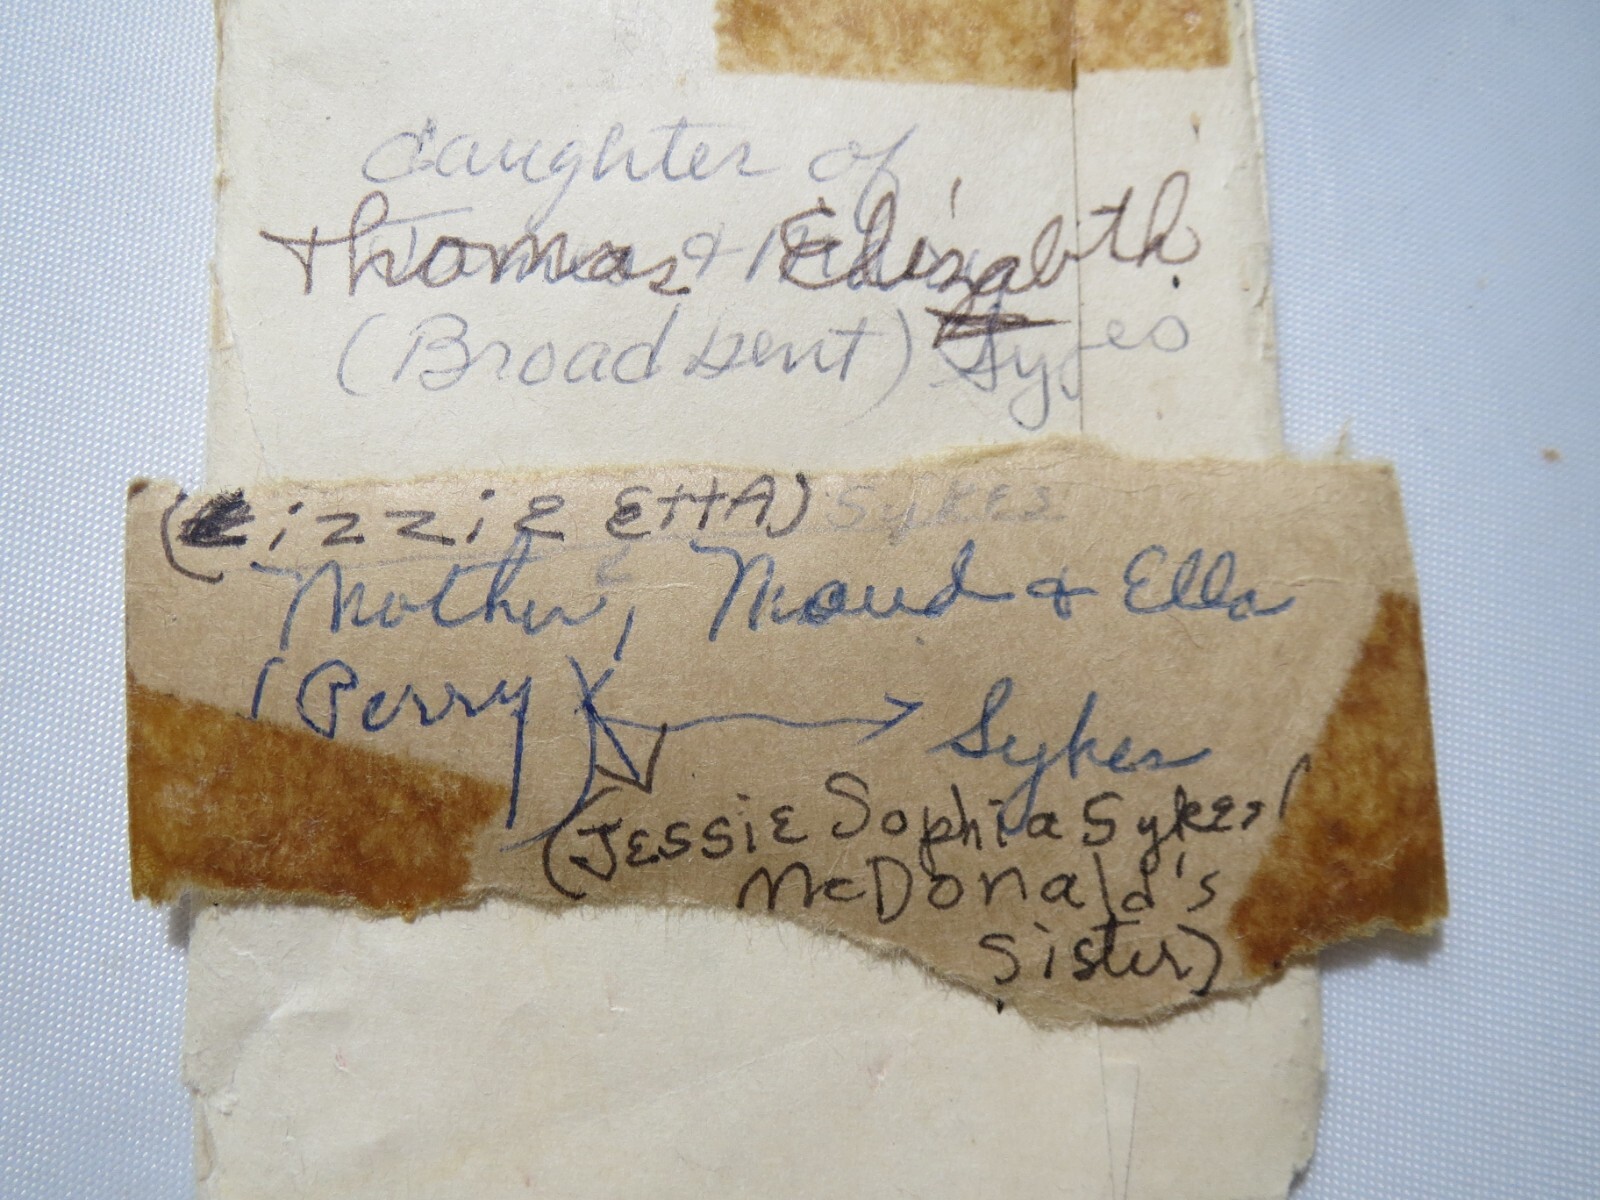 daughter of
Thomas & Elizabeth
(Broadbent) Sykes
(Lizzie EttA) SYKES
Mother, Maud & Ella
(Perry) → Sykes
(JESSiE Sophia Sykes
McDonald's
Sister)